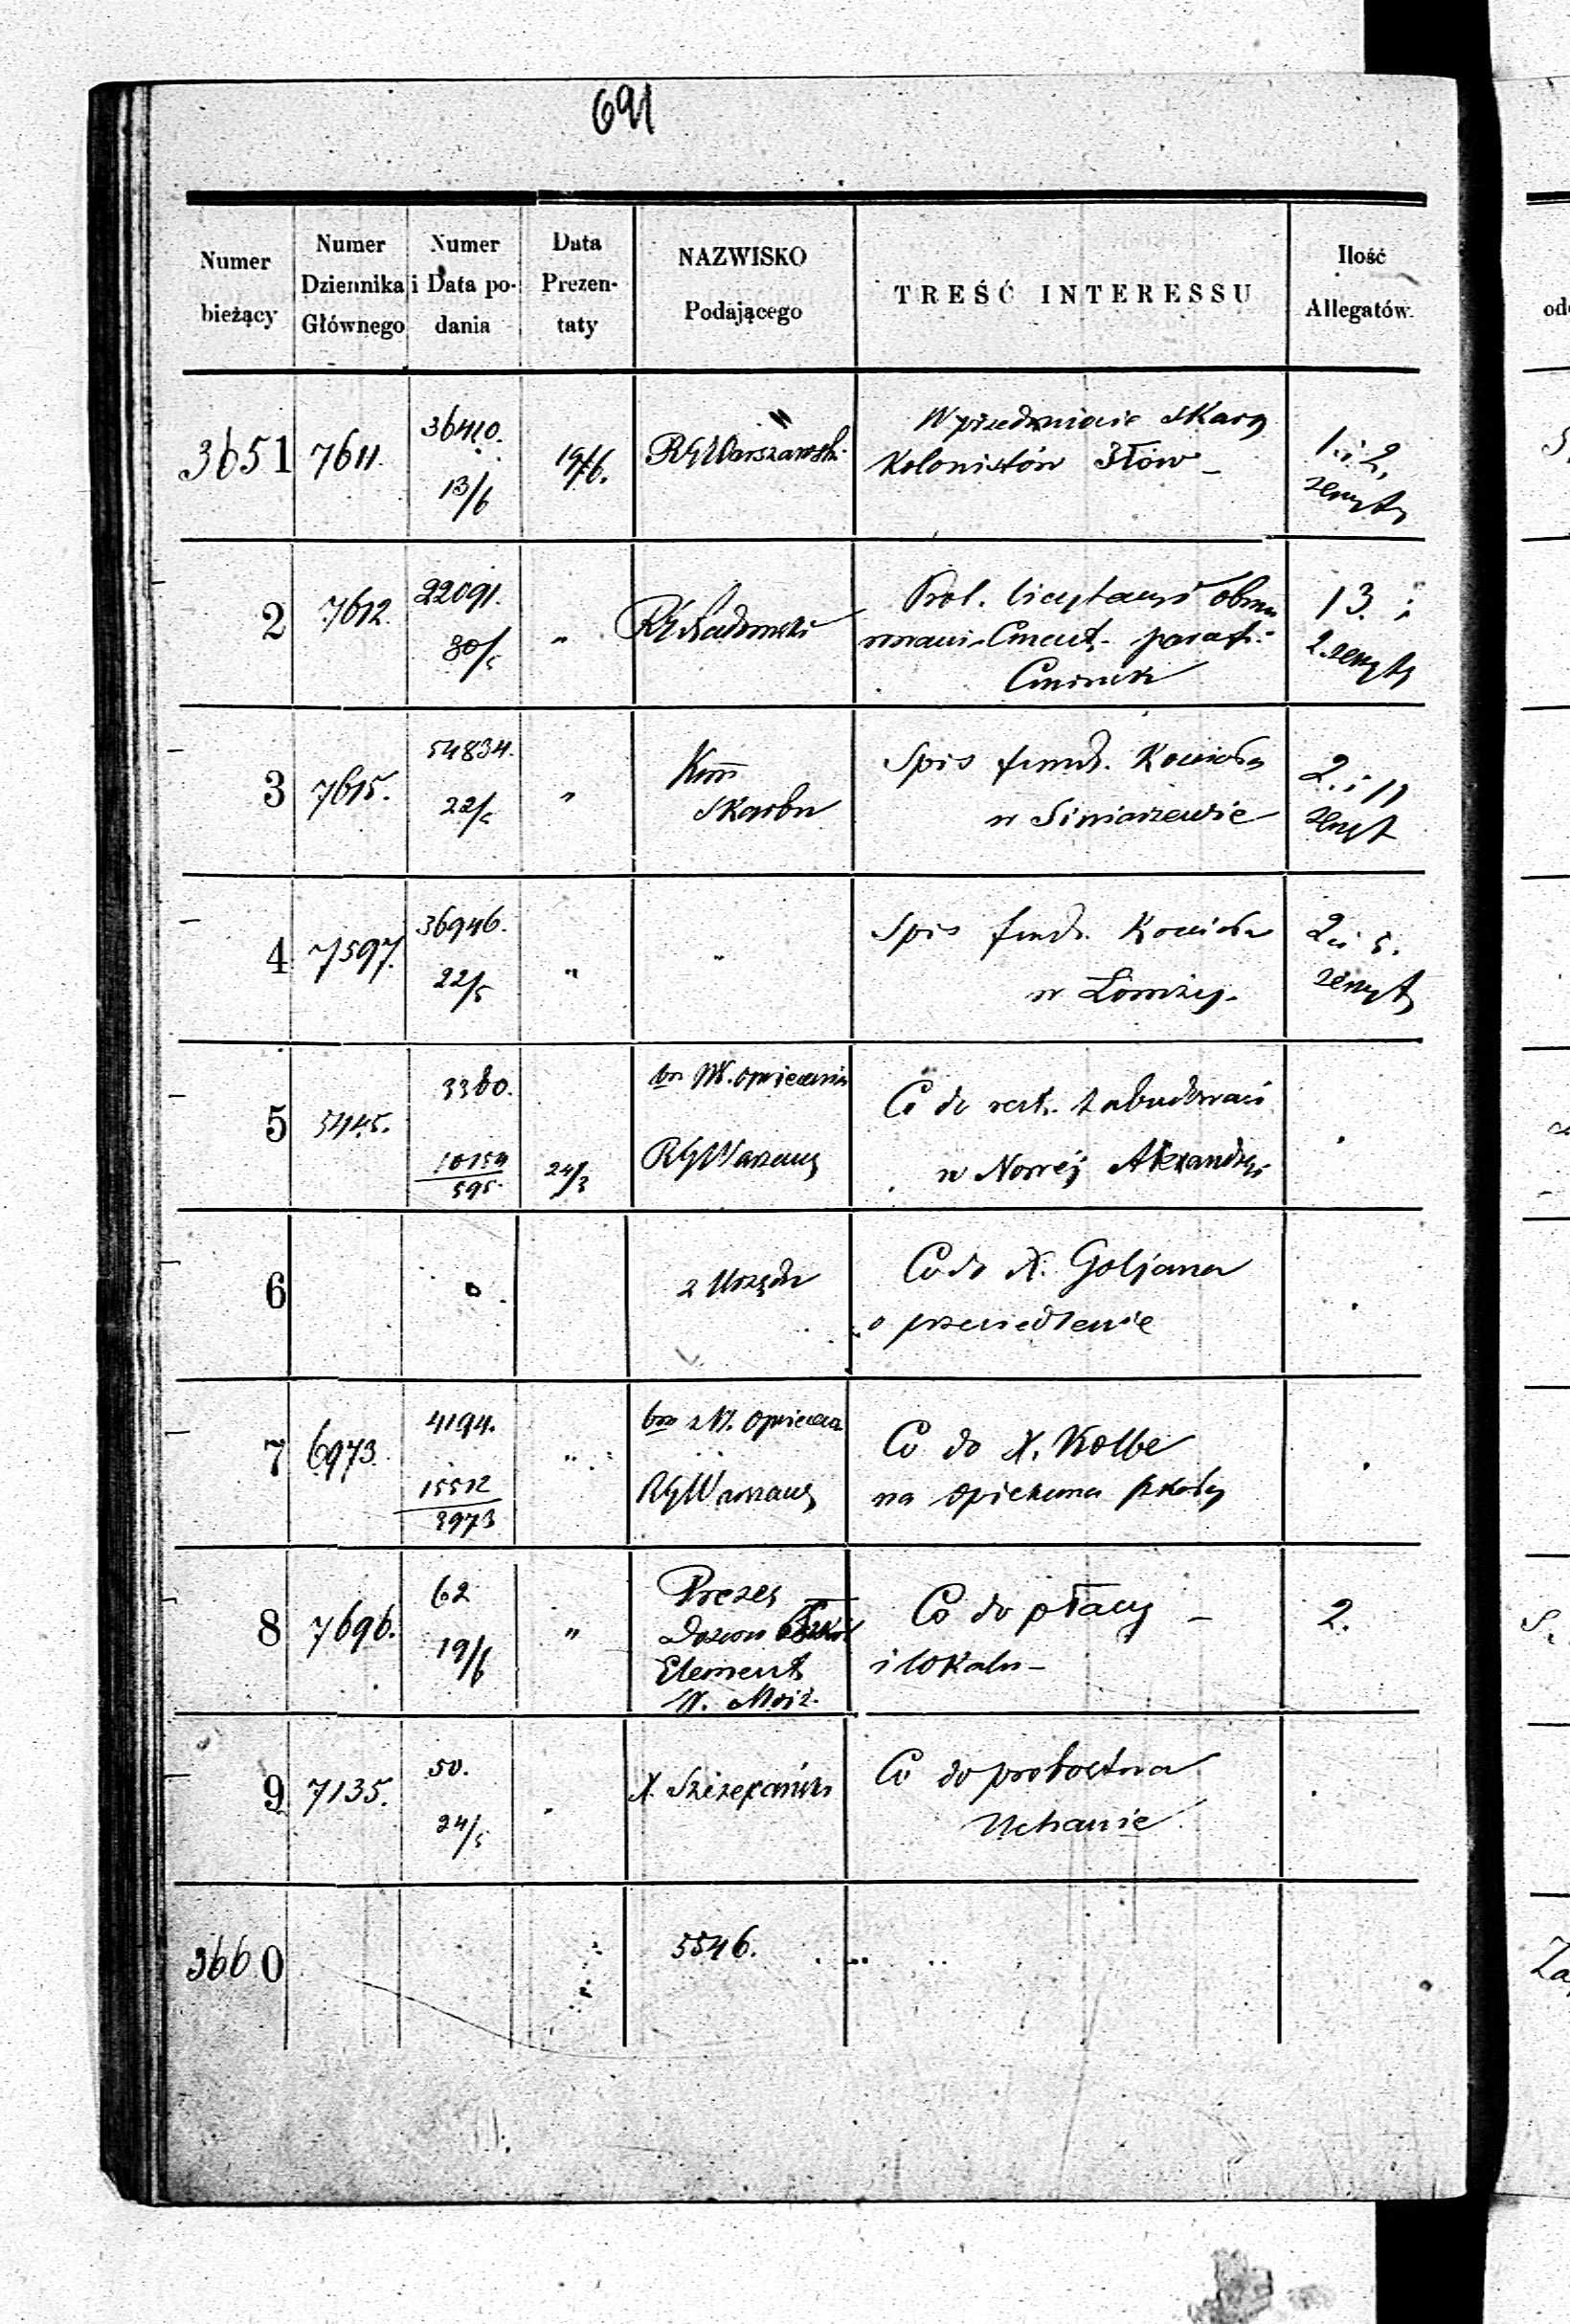 691
Numer bieżący
Numer Dziennika Głównego
Numer i Data podania
Data Prezentaty
NAZWISKO Podającego
TREŚĆ INTERESSU
Ilość Allegatów.
3651 7611. 36410. 13/6 19/6. RGWarszawski
W przedmiocie skarg
Kolonistów Iłow –
1. i 2.
zeszyty
2 7612. 22091. 30/5 " RGRadomski
Prot. licytacyi
Cment. parafi:
13. i
2. zeszyty
3 7615. 54834. 22/5 "
Kom
Skarbu
Spis fund. Kościoła
w Siniarzewie
2. i 11
zeszyt
4 7597. 36946. 22/5 " "
Spis fund. Kościoła
w Łomży.
2. i 5.
zeszyt
5 5445. 3360.
10154
595.
24/3
RGWarszaws
Co do rest. zabudowań
w Nowej Alexandryi
6
z Urzędu
Co do X. Goljana
o przesiedlenie
7 6973. 4194. "
15512
3973
RGWarszaws
Co do X. Kolbe
na opiekuna szkoły
8 7696. 62 19/6 "
Prezes
Dozoru Szkół
Element
W. Mojż.
Co do płacy –
i lokalu –
2.
9 7135. 50. 24/5
X. Szczepański
Co do probostwa
Uchanie.
3660
5546.